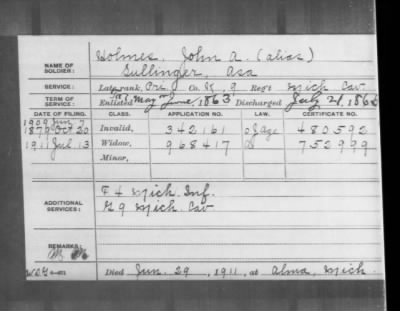 NAME OF SOLDIER: Holmes, John A. (alias)
Sullinger, Asa
SERVICE: Late rank, Pri, Co. K, 9 Reg't Mich Cav
TERM OF SERVICE: Enlisted May June, 1863 Discharged July 21, 1865
DATE OF FILING. CLASS. APPLICATION NO. LAW. CERTIFICATE NO.
1909 Jun 7
1879 Oct 20 Invalid, 342161 480592
1911 Jul 13 Widow, 968417 752999
Minor,
ADDITIONAL SERVICES: F 4 Mich Inf.
G 9 Mich Cav
REMARKS:
Died Jun. 29, 1911, at Alma, Mich.